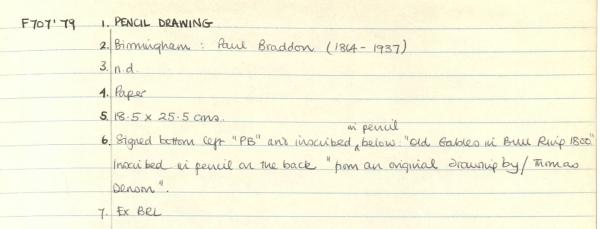 F707'79 1. PENCIL DRAWING
2. Birmingham : Paul Braddon (1864 - 1937)
3. n.d.
4. Paper
5. 18.5 x 25.5 cms.
6. Signed bottom left "PB" and inscribed in pencil below "Old Gables in Bull Ring 1800"
Inscribed in pencil on the back "from an original drawing by / Thomas
Denson".
7. Ex BRL